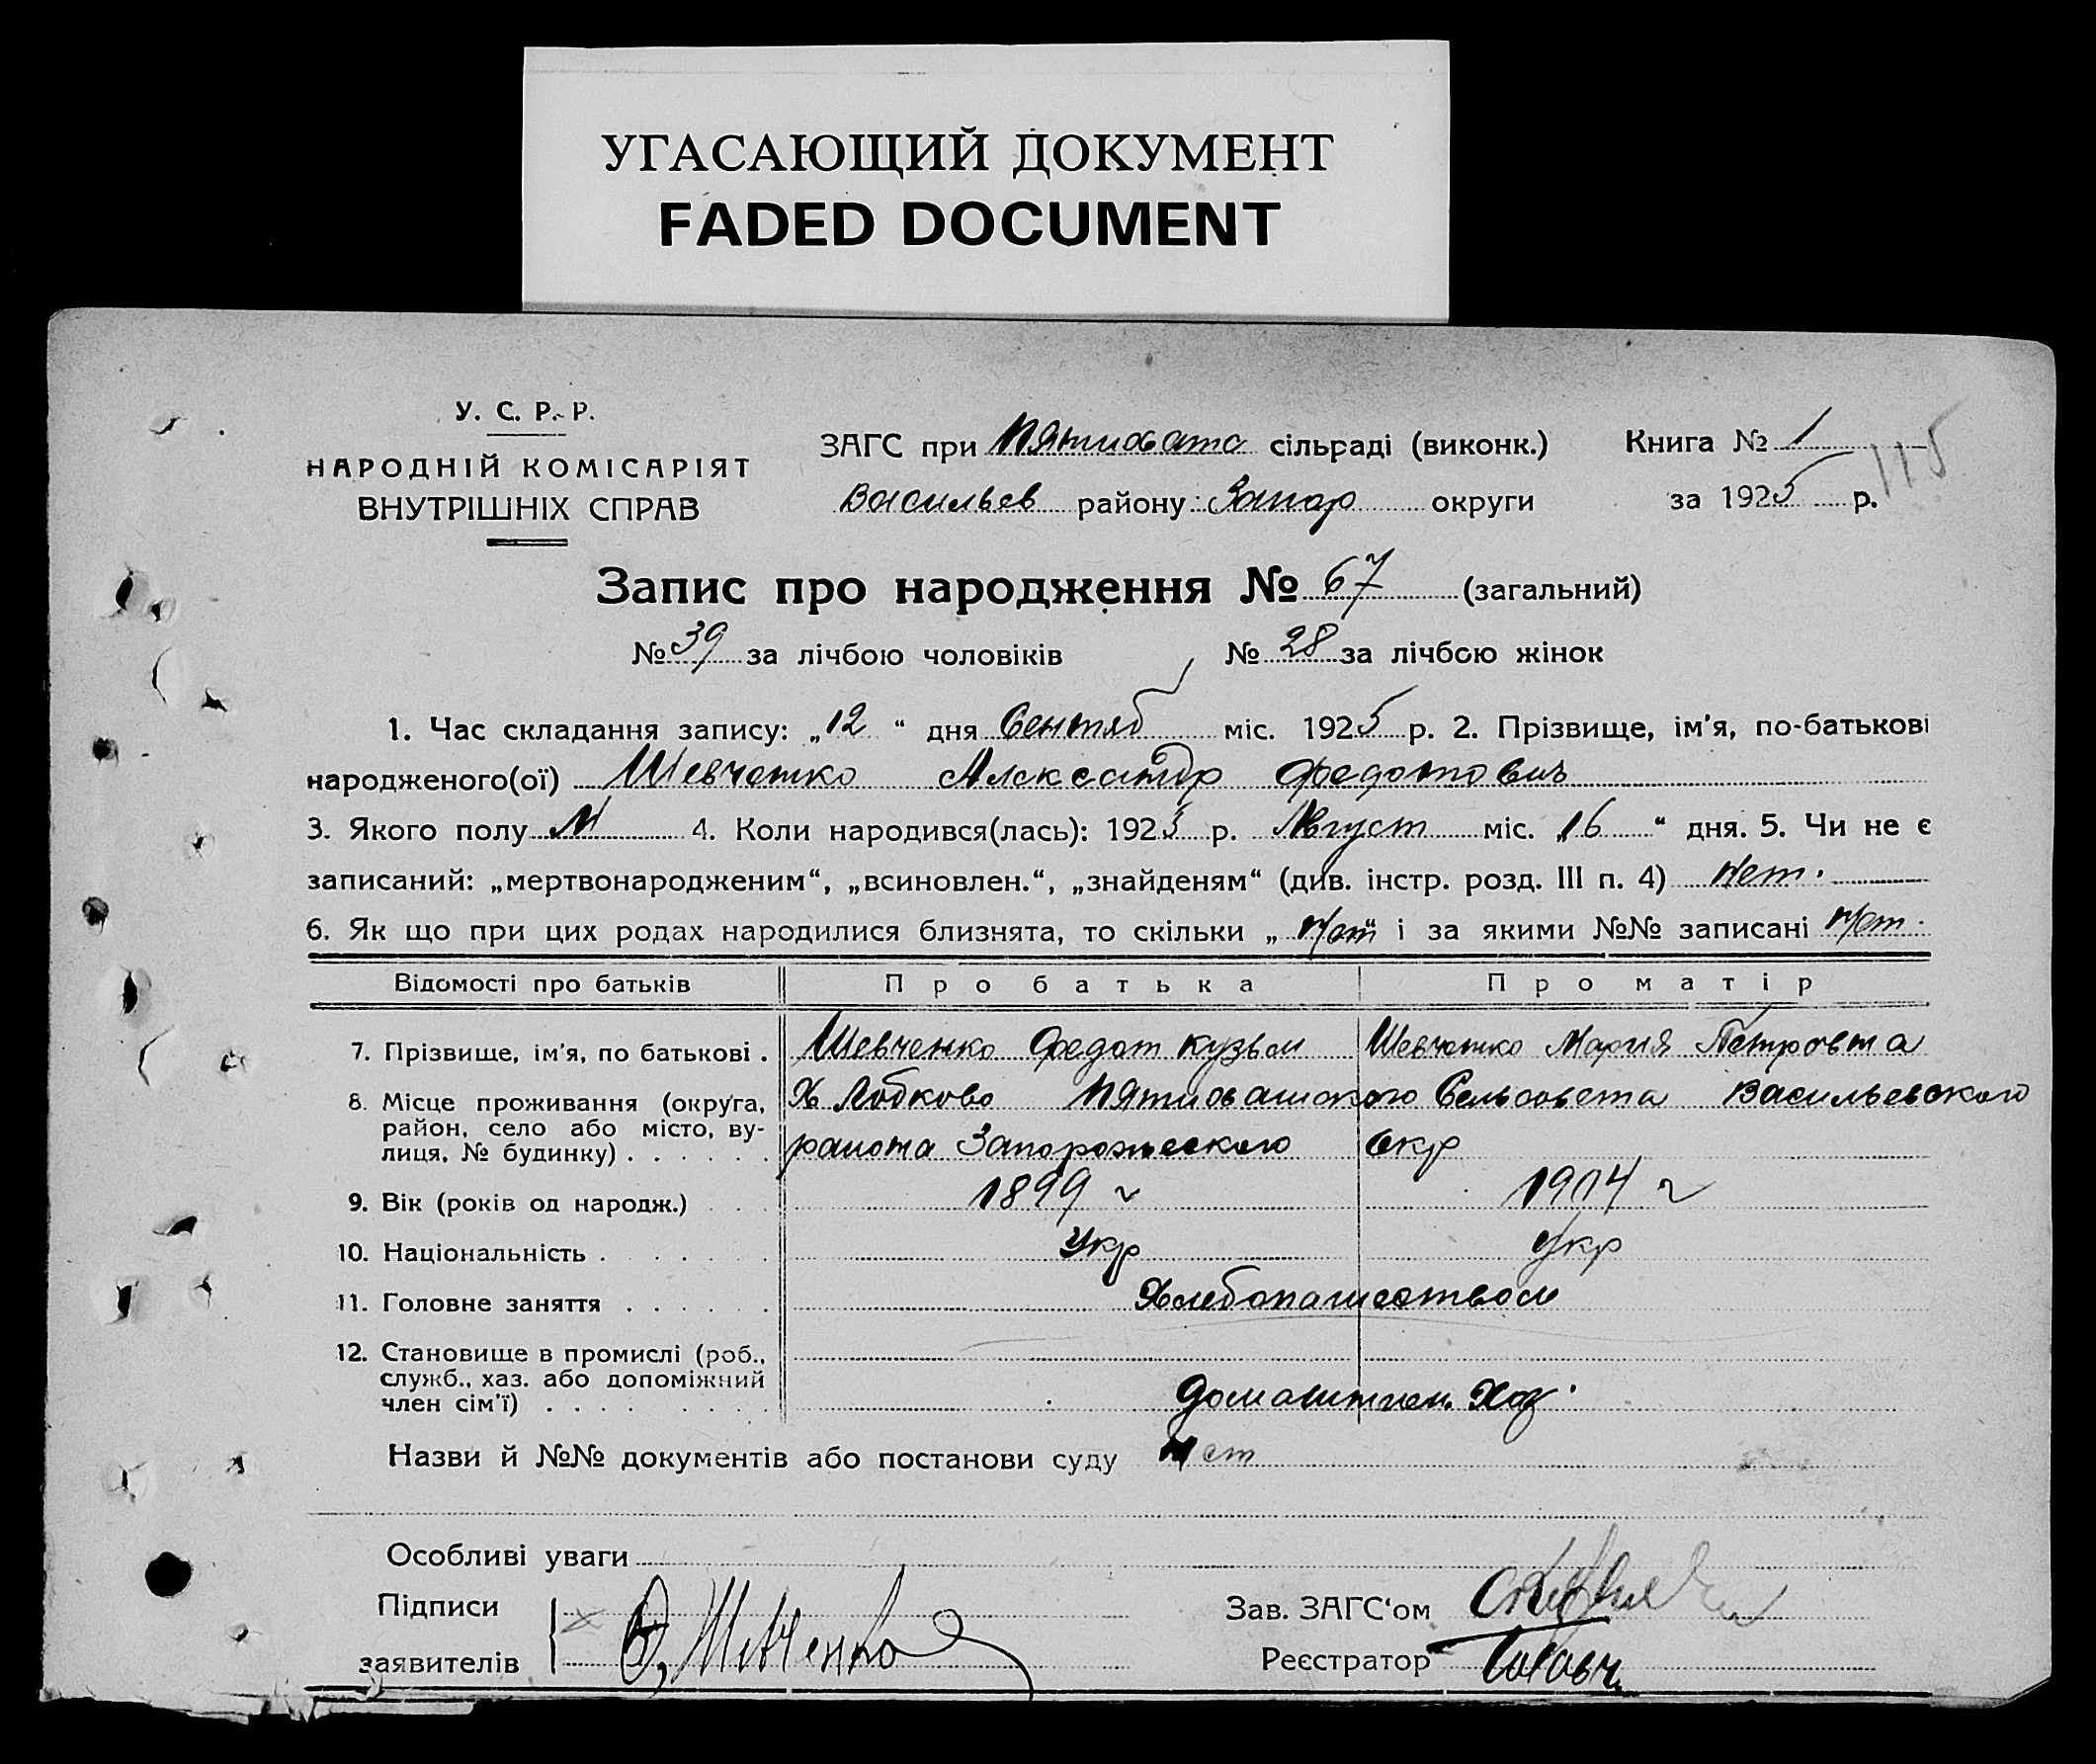 УГАСАЮЩИЙ ДОКУМЕНТ
FADED DOCUMENT
У. С. Р. Р.
НАРОДНІЙ КОМІСАРІЯТ
ВНУТРІШНІХ СПРАВ
ЗАГС при Пятихата сільраді (виконк.) Книга № 1
115
Васильев району Запор округи за 1925 р.
Запис про народження № 67 (загальний)
№ 39 за лічбою чоловіків № 28 за лічбою жінок
1. Час складання запису: „12“ дня Сентяб міс. 1925 р. 2. Прізвище, ім'я, по-батькові
народженого(ої) Шевченко Александр Федотович
3. Якого полу М 4. Коли народився(лась): 1923 р. Август міс. „16“ дня. 5. Чи не є
записаний: „мертвонародженим“, „всиновлен.“, „знайденям“ (див. інстр. розд. III п. 4) нет.
6. Як що при цих родах народилися близнята, то скільки „нет“ і за якими №№ записані нет.
Відомості про батьків Про батька Про матір
7. Прізвище, ім'я, по батькові . Шевченко Федот Кузьм Шевченко Мария Петровна
8. Місце проживання (округа, район, село або місто, ву-лиця, № будинку) . . . . . . Х Лобково Пятихатского Сельсовета Васильевского
района Запорожского Окр
9. Вік (років од народж.) . . . 1899 г 1904 г
10. Національність . . . . . Укр Укр
11. Головне заняття . . . . . Хлебопашеством
12. Становище в промислі (роб., служб., хаз. або допоміжний член сім'ї) . . . . . . . Домашнем. Хоз.
Назви й №№ документів або постанови суду нет
Особливі уваги
Підписи
заявителів Ф, Шевченко
Зав. ЗАГС'ом
Реєстратор